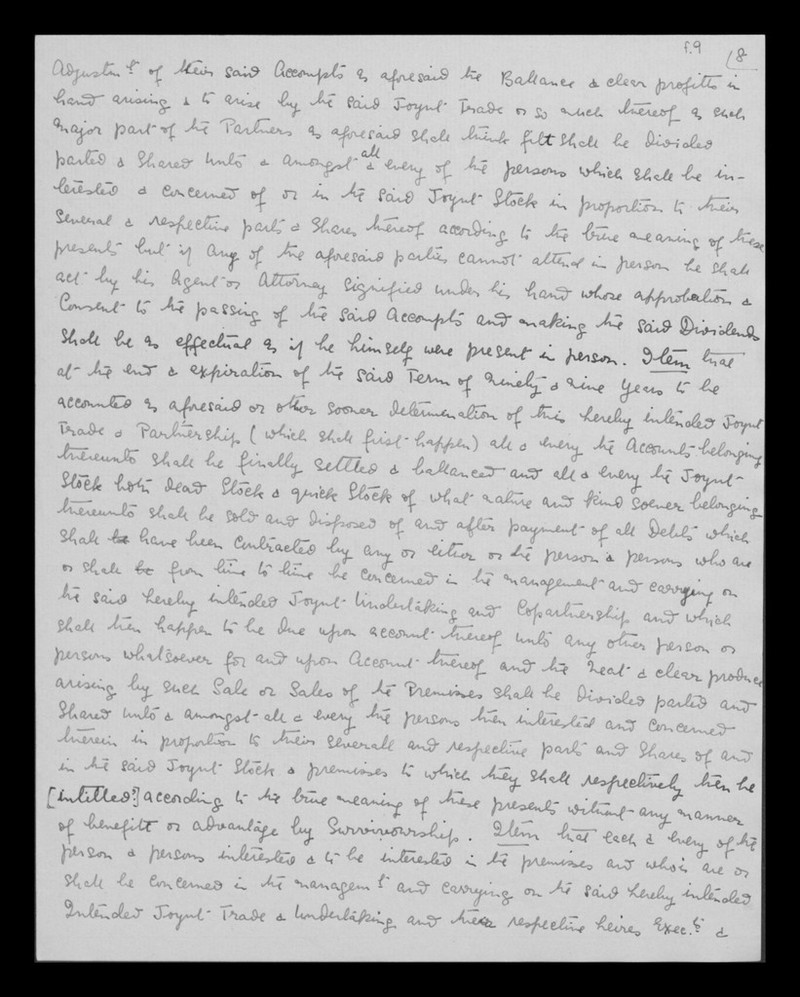 f.9 (8
Adjustmt of their said Accompts as aforesaid the Ballance & clear profitts in
hand arising & to arise by the said Joynt Trade or so much thereof as such
major part of the Partners as aforesaid shall think fitt shall be divided
parted & shared unto & amongst all & every of the persons which shall be in-
terested & concerned of or in the said Joynt Stock in proportion to their
several & respective parts & shares thereof according to the true meaning of these
presents but if any of the aforesaid parties cannot attend in person he shall
act by his Agent or Attorney signified under his hand whose approbation &
Consent to the passing of the said Accompts and making the said Dividends
shall be as effectual as if he himself were present in person. Item that
at the end & expiration of the said Term of ninety & nine years to be
accounted as aforesaid or other sooner determination of this hereby intended Joynt
Trade & Partnership (which shall first happen) all & every the Accounts belonging
thereunto shall be finally settled & ballanced and all & every the Joynt
Stock both dead Stock & quick Stock of what nature and kind soever belonging
thereunto shall be sold and disposed of and after payment of all Debts which
shall be have been contracted by any or either or the person & persons who are
or shall be from time to time be concerned in the management and carrying on
the said hereby intended Joynt Undertaking and Copartnership and which
shall then happen to be due upon account thereof unto any other person or
persons whatsoever for and upon Account thereof and the neat & clear produce
arising by such Sale or Sales of the Premisses shall be divided parted and
shared unto & amongst all & every the persons then interested and concerned
therein in proportion to their severall and respective parts and shares of and
in the said Joynt Stock & premisses to which they shall respectively then be
[intitled?] according to the true meaning of these presents without any manner
of benefitt or advantage by Survivourship. Item that each & every of the
person & persons interested & to be interested in the premisses and who is are or
shall be concerned in the managemt and carrying on the said hereby intended
Intended Joynt Trade & Undertaking and their respective heires Exec.rs &